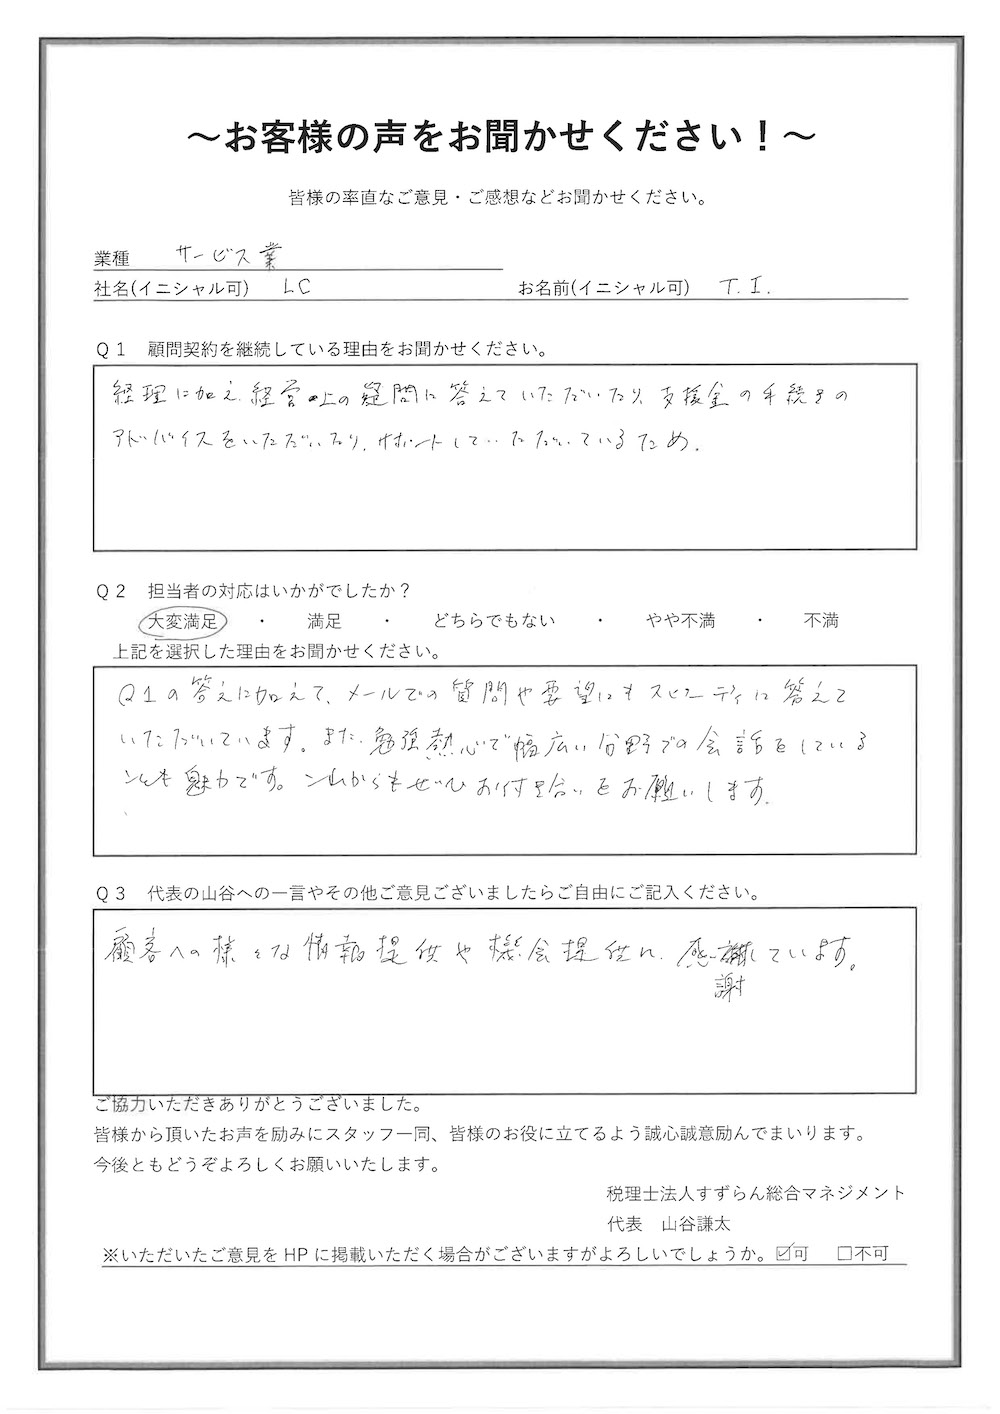 ～お客様の声をお聞かせください！～
皆様の率直なご意見・ご感想などお聞かせください。
業種　サービス業
社名(イニシャル可)　LC　お名前(イニシャル可)　T. I.
Q1　顧問契約を継続している理由をお聞かせください。
経理に加え、経営上の疑問に答えていただいたり、支援金の手続きの
アドバイスをいただいたり、サポートしていただいているため。
Q2　担当者の対応はいかがでしたか？
大変満足　・　満足　・　どちらでもない　・　やや不満　・　不満
上記を選択した理由をお聞かせください。
Q1の答えに加えて、メールでの質問や要望にもスピーディに答えて
いただいています。また、勉強熱心で幅広い分野での会話をしている
ことも魅力です。これからもぜひお付き合いをお願いします。
Q3　代表の山谷への一言やその他ご意見ございましたらご自由にご記入ください。
顧客への様々な情報提供や機会提供に、感謝しています。
謝
ご協力いただきありがとうございました。
皆様から頂いたお声を励みにスタッフ一同、皆様のお役に立てるよう誠心誠意励んでまいります。
今後ともどうぞよろしくお願いいたします。
税理士法人すずらん総合マネジメント
代表　山谷謙太
※いただいたご意見をHPに掲載いただく場合がございますがよろしいでしょうか。☑可　□不可